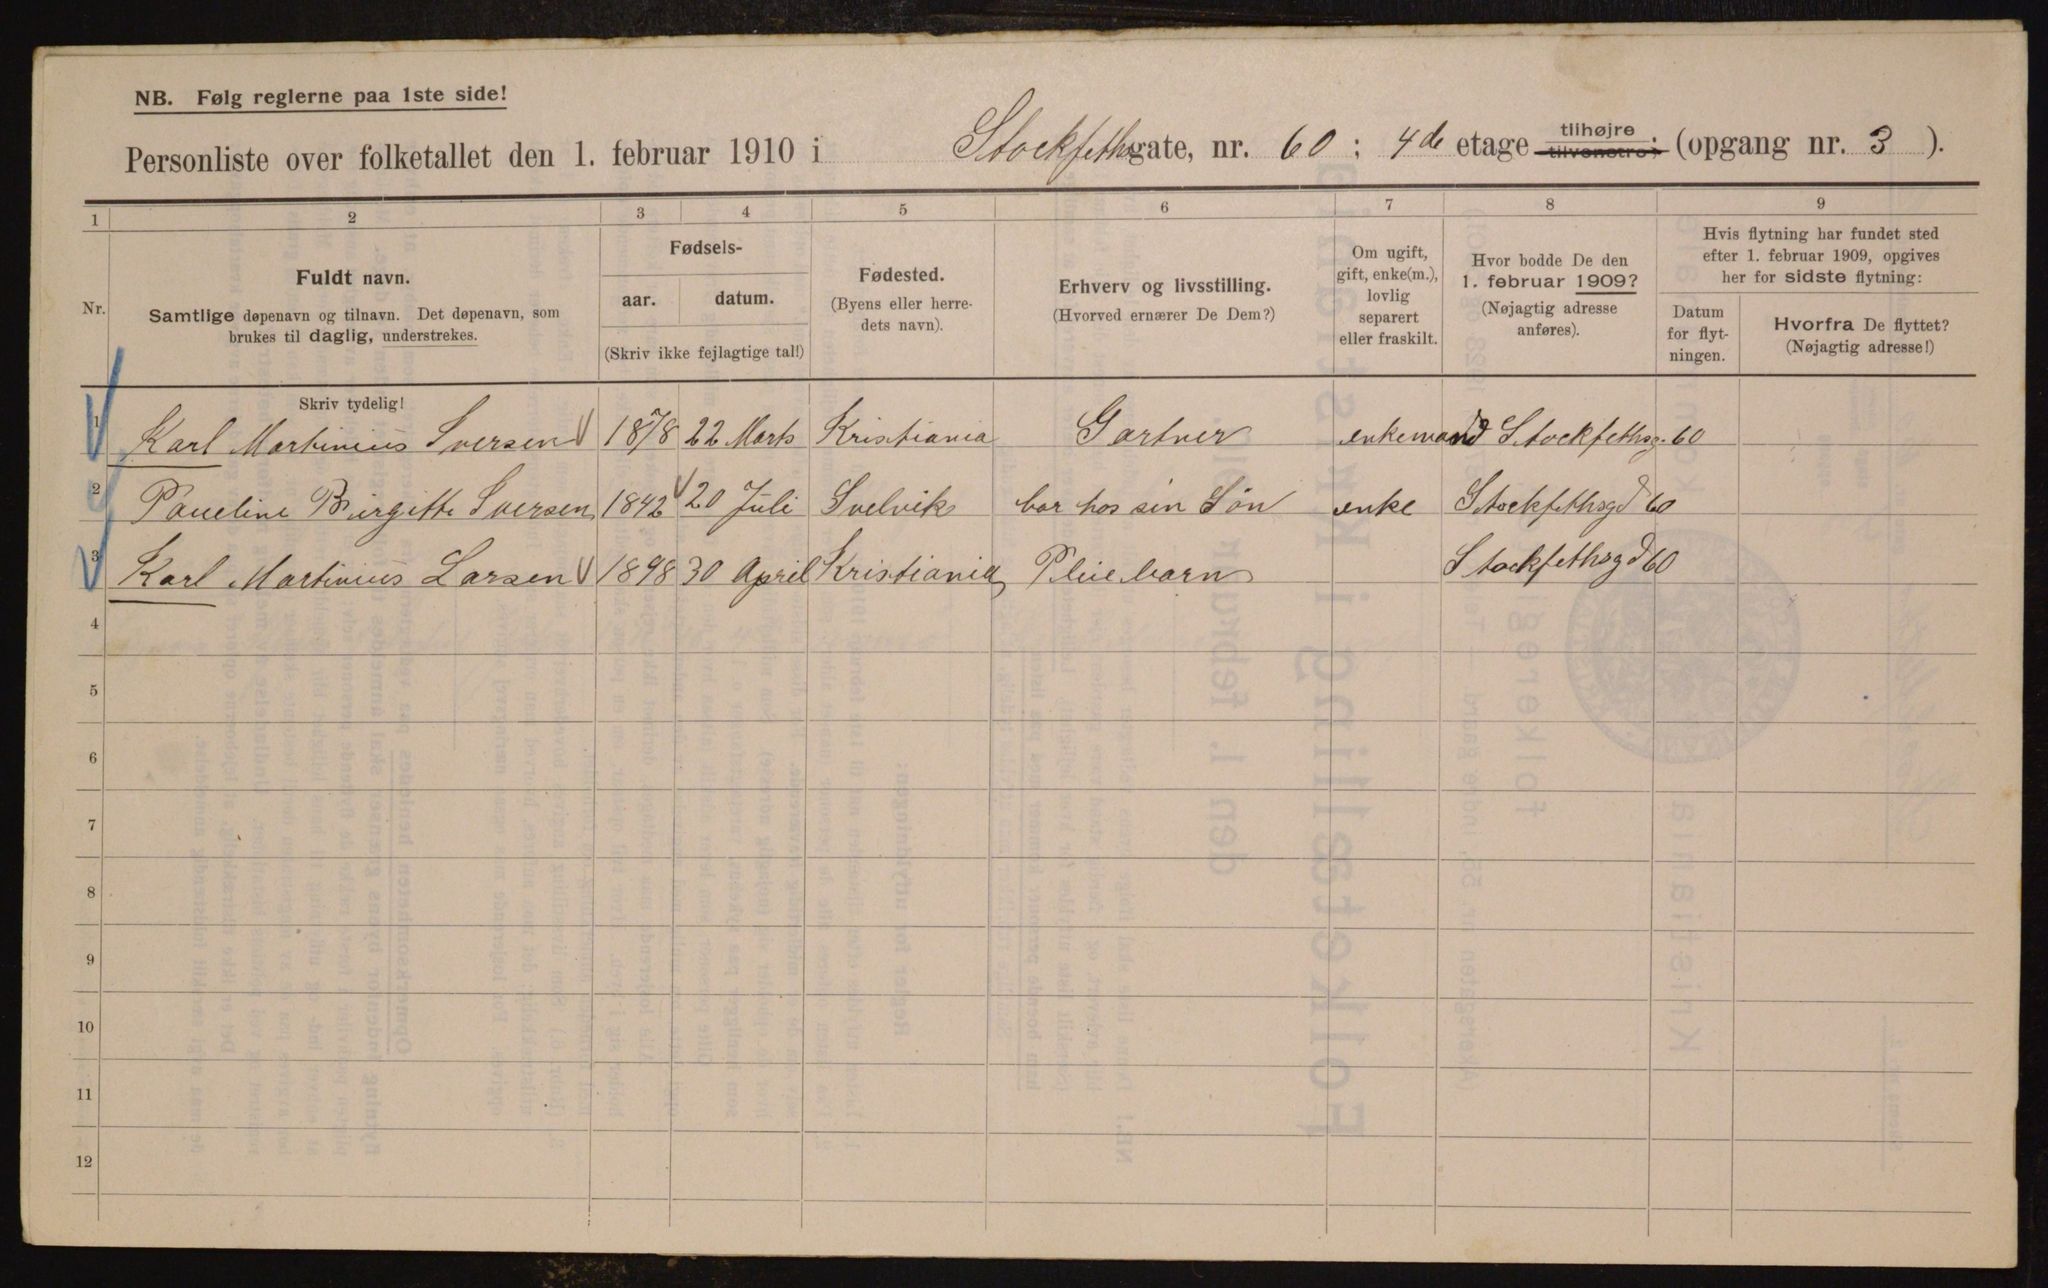 NB. Følg reglerne paa 1ste side!
Personliste over folketallet den 1. februar 1910 i Stockfethsgate, nr. 60 ; 4de etage tilhøjre tilvenstre; (opgang nr. 3 ).
1 2 3 4 5 6 7 8 9
Nr.
Fuldt navn.
Samtlige døpenavn og tilnavn. Det døpenavn, som
brukes til daglig, understrekes.
Fødsels-
aar. datum.
(Skriv ikke fejlagtige tal!)
Fødested.
(Byens eller herre-
dets navn).
Erhverv og livsstilling.
(Hvorved ernærer De Dem?)
Om ugift,
gift, enke(m.),
lovlig
separert
eller fraskilt.
Hvor bodde De den
1. februar 1909?
(Nøjagtig adresse
anføres).
Hvis flytning har fundet sted
efter 1. februar 1909, opgives
her for sidste flytning:
Datum
for flyt-
ningen.
Hvorfra De flyttet?
(Nøjagtig adresse!)
Skriv tydelig!
1 Karl Martinius Iversen 1878 22 Marts Kristiania Gartner enkemand Stockfethsg. 60
2 Pauline Birgitte Iversen 1842 20 Juli Svelvik bor hos sin Søn enke Stockfethsgd 60
3 Karl Martinius Larsen 1898 30 April Kristiania Pleiebarn Stockfethsgd 60
4
5
6
7
8
9
10
11
12